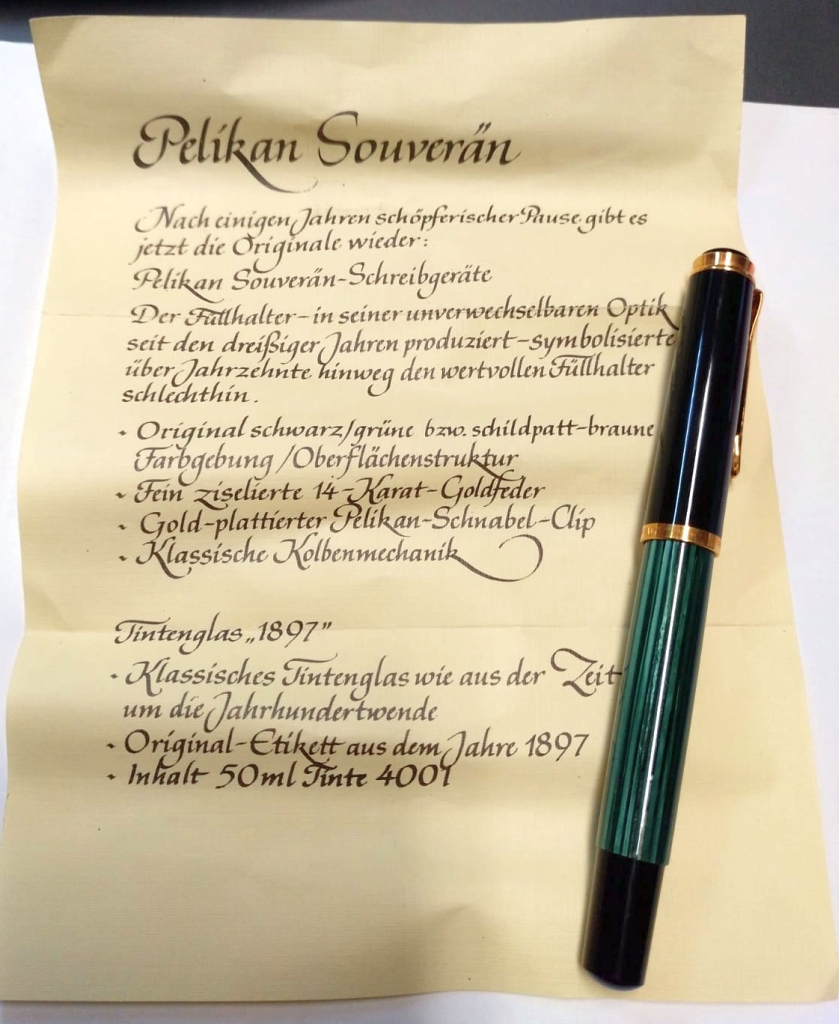 Pelikan Souverän
Nach einigen Jahren schöpferischer Pause gibt es
jetzt die Originale wieder:
Pelikan Souverän-Schreibgeräte
Der Füllhalter – in seiner unverwechselbaren Optik
seit den dreißiger Jahren produziert – symbolisierte
über Jahrzehnte hinweg den wertvollen Füllhalter
schlechthin.
• Original schwarz/grüne bzw. schildpatt-braune
Farbgebung/Oberflächenstruktur
• Fein ziselierte 14-Karat-Goldfeder
• Gold-plattierter Pelikan-Schnabel-Clip
• Klassische Kolbenmechanik
Tintenglas „1897”
• Klassisches Tintenglas wie aus der Zeit
um die Jahrhundertwende
• Original-Etikett aus dem Jahre 1897
• Inhalt 50ml Tinte 4001